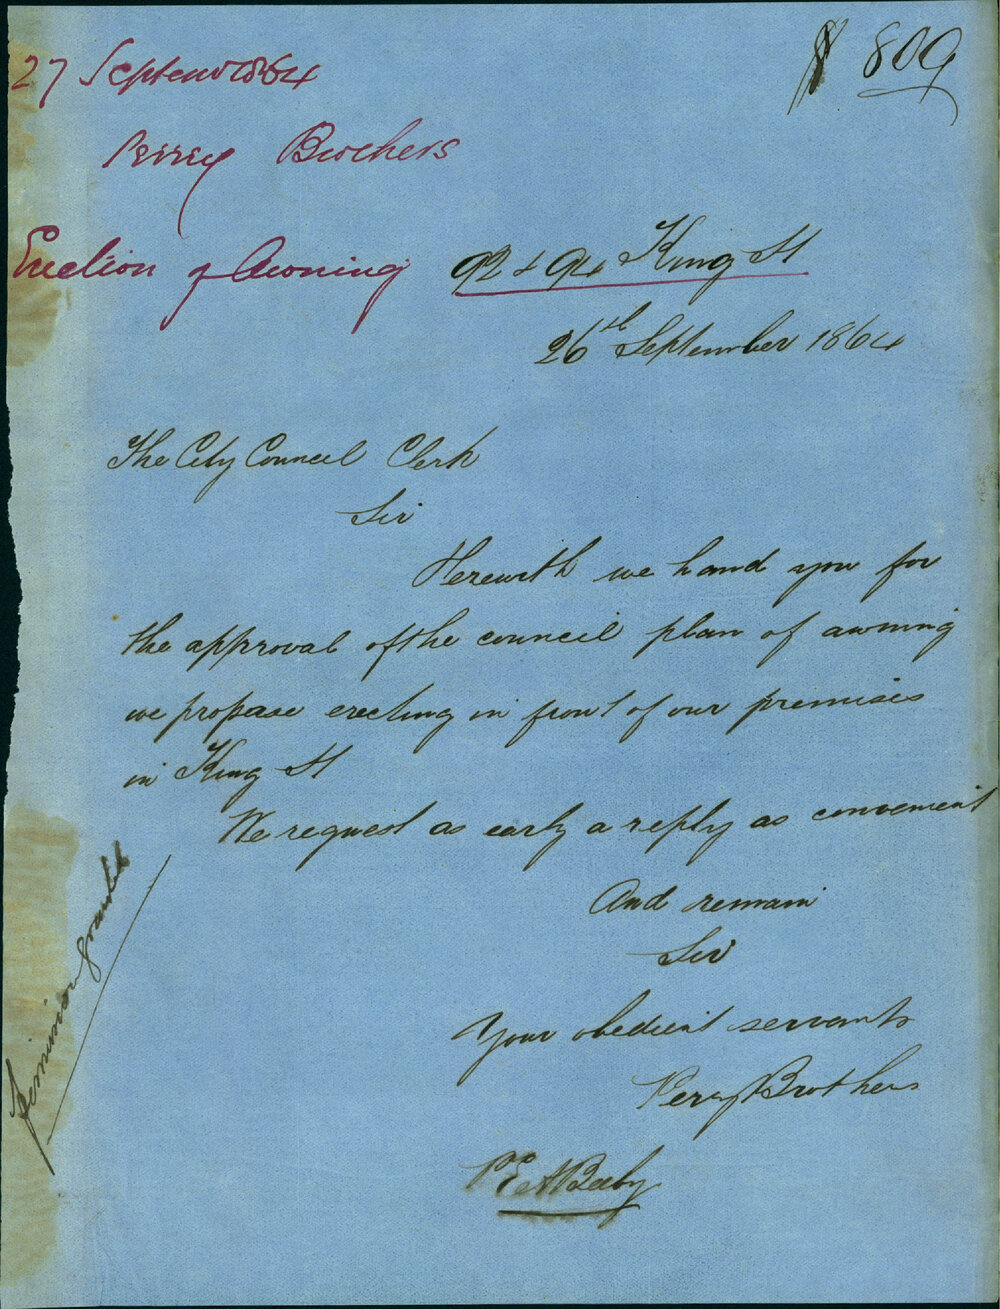 27 September 64
809
Perry Brothers
Erection of Awning
92 & 94 King St
26th September 1864
The City Council Clerk
Sir
Herewith we hand you for
the approval of the council plan of awning
we propose erecting in front of our premises
in King St
We request as early a reply as convenient
And remain
Sir
Your obedient servants
Perry Brothers
Beeby
permission granted